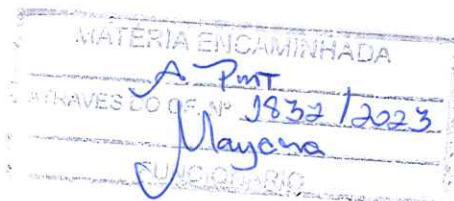 MATÉRIA ENCAMINHADA
A PMT
ATRAVÉS DO OF. Nº 1832 / 2023
Mayara
FUNCIONÁRIO